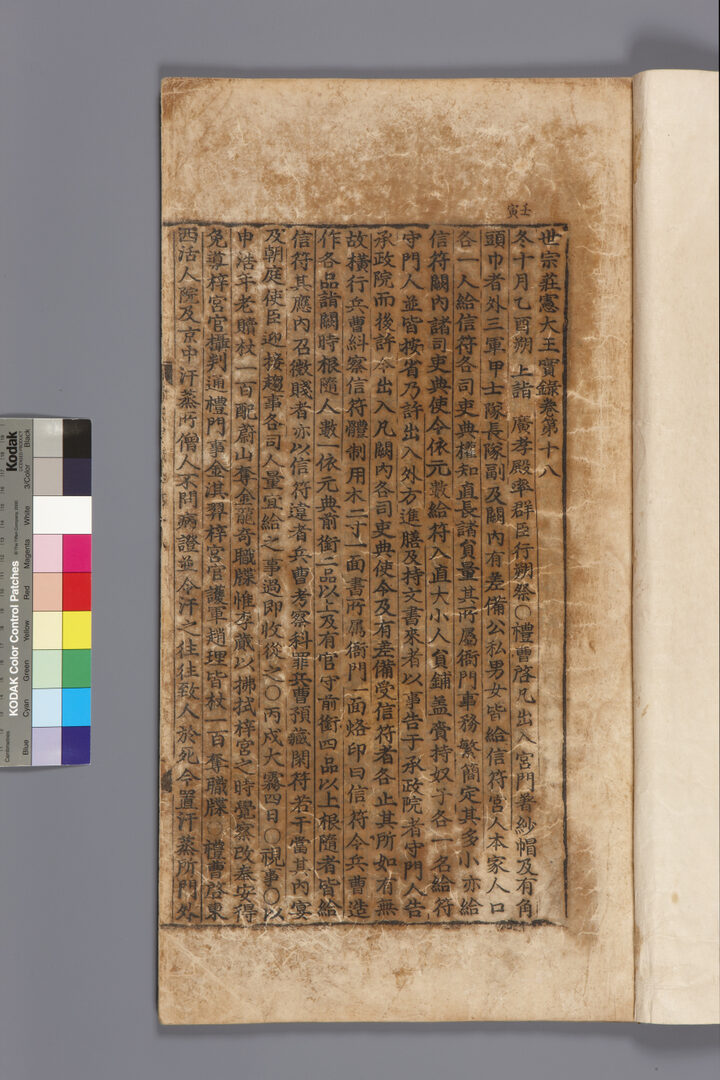 壬寅
世宗莊憲大王實錄卷第十八
冬十月乙酉朔 上詣 廣孝殿率群臣行朔祭○禮曹啓凡出入宮門著紗帽及有角
頭巾者外三軍甲士隊長隊副及闕內有差備公私男女皆給信符宮人本家人口
各一人給信符各司吏典權知直長諸員量其所屬衙門事務繁簡定其多小亦給
信符闕內諸司吏典使令依元數給符入直大小人員鋪盖賫持奴子各一名給符
守門人並皆按省乃許出入外方進膳及持文書來者以事告于承政院者守門人告
承政院而後許令出入凡闕內各司吏典使令及有差備受信符者各止其所如有無
故橫行兵曹糾察信符體制用木二寸一面書所屬衙門一面烙印曰信符令兵曹造
作各品詣闕時根隨人數一依元典前銜二品以上及有官守前銜四品以上根隨者皆給
信符其應內召徵賤者亦以信符違者兵曹考察科罪兵曹預藏閑符若干當其內宴
及朝庭使臣迎接趨事各司人量宜給之事過即收從之○丙戌大霧四日○視事○以
申浩年老贖杖一百配蔚山奪金龍奇職牒惟李蕆以拂拭梓宮之時覺察改奉安得
免導梓宮官攝判通禮門事金淇羿梓宮官護軍趙理皆杖一百奪職牒○禮曹啓東
西活人院及京中汗蒸所僧人不問病證並令汗之往往致人於死今置汗蒸所門外
Kodak
KODAK Color Control Patches
Blue Cyan Green Yellow Red Magenta White 3/Color Black